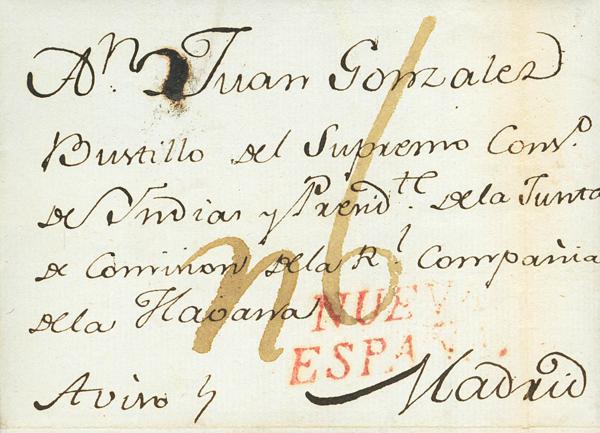 A Dn. Juan Gonzalez
Bustillo del Supremo Consº.
de Yndias y Presidte. de la Junta
de Comision de la Rl. Compañia
de la Havana
n6
NUEVA
ESPAÑA.
Madrid